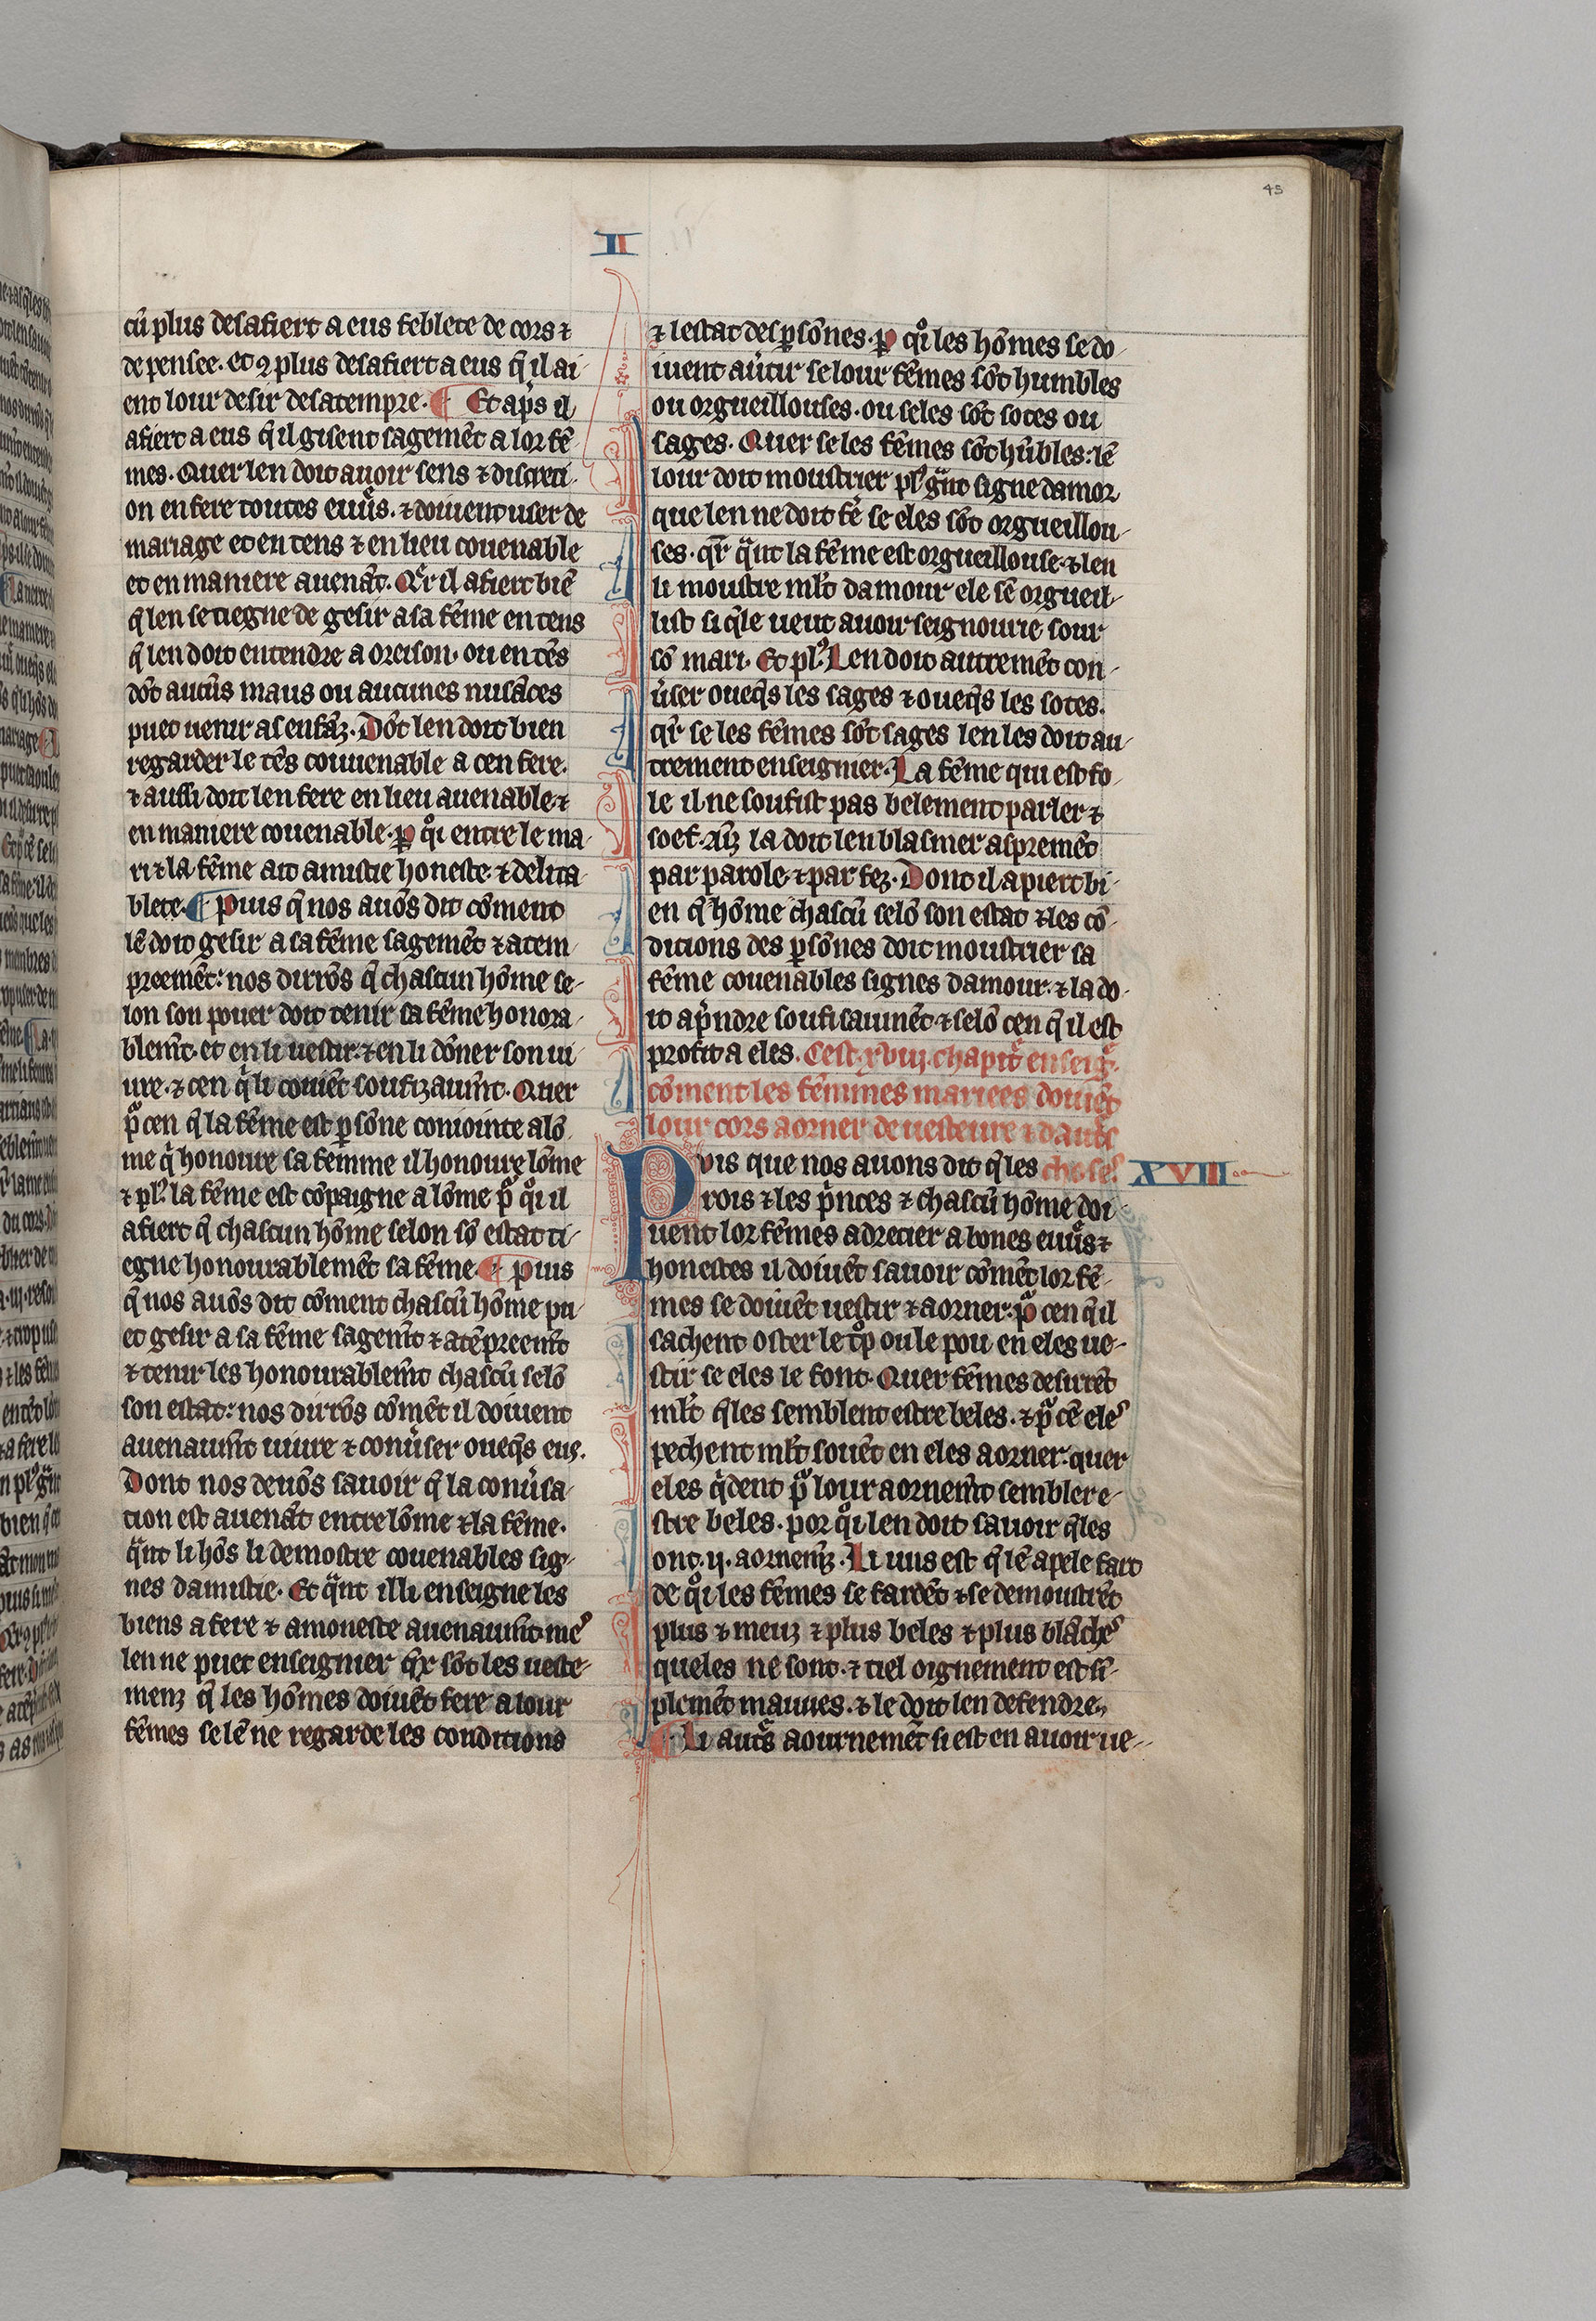 45
II
cũ plus desafiert a eus feblete de cors ⁊
de pensee. et ꝯ plus desafiert a eus q̃ il ai
ent lour desir desatempre. ¶ Et ap̃s il
afiert a eus q̃ il gisent sagemẽt a lor fẽ
mes. Quer len doit auoir sens ⁊ discreti
on en fere toutes euurs. ⁊ doiuent user de
mariage et en tens ⁊ en lieu couenable
et en maniere auenãt. Qr̃ il afiert biẽ
q̃ len se tiegne de gesir a sa fẽme en tens
q̃ len doit entendre a oreison. ou en tẽs
dõt aucũs maus ou aucunes nusãces
puet uenir as enfãz. Dõt len doit bien
regarder le tẽs couuenable a cen fere.
⁊ aussi doit len fere en lieu auenable ⁊
en maniere couenable. ꝑ qͦi entre le ma
ri ⁊ la fẽme ait amistie honeste ⁊ delita
blete. ¶ Puis q̃ nos auõs dit cõment
lẽ doit gesir a sa fẽme sagemẽt ⁊ atem
preemẽt: nos dirrõs q̃ chascun hõme se
lon son pouer doit tenir sa fẽme honora
blemt̃. et en li uestir. ⁊ en li dõner son ui
ure. ⁊ cen q̃ li couiẽt soufizaumt̃. Quer
pͣ cen q̃ la fẽme est ꝑsõne coniointe a lõ
me qͥ honoure sa femme il honoure lõme
⁊ plꝰ. la fẽme est cõpaigne a lõme pͣ qͦi il
afiert q̃ chascun hõme selon sõ estat ti
egne honourablemẽt sa fẽme. ¶ Puis
q̃ nos auõs dit cõment chascũ hõme pu
et gesir a sa fẽme sagemt̃ ⁊ atẽpreemt̃
⁊ tenir les honourablemt̃ chascũ selõ
son estat: nos dirrõs cõmẽt il doiuent
auenaumt̃ uiure ⁊ conũser oueq̃s eus.
Dont nos deuõs sauoir q̃ la conũsa
tion est auenãt entre lõme ⁊ la fẽme.
qͣnt li hõs li demostre couenables sig
nes damistie. Et qͣnt il li enseigne les
biens a fere ⁊ amoneste auenaumt̃. meꝰ
len ne puet enseignier qͣx sõt les ueste
menz q̃ les hõmes doiuẽt fere a lour
fẽmes se lẽ ne regarde les conditions
⁊ lestat des ꝑsõnes. ꝑ qͦi les hõmes se do
iuent aũtir se lour fẽmes sõt humbles
ou orgueillouses. ou seles sõt sotes ou
sages. Quer se les fẽmes sõt hũbles: lẽ
lour doit moustrier plꝰ gͣnt signe damor
que len ne doit fẽ se eles sõt orgueillou
ses. qr̃ qͣnt la fẽme est orgueillouse. ⁊ len
li moustre ml̃t damour ele sẽ orgueil
list si q̃le ueut auoir seignourie sour
sõ mari. Et plꝰ. Len doit autremẽt con
ũser oueq̃s les sages ⁊ oueq̃s les sotes.
qr̃ se les fẽmes sõt sages len les doit au
trement enseignier. La fẽme qui est fo
le il ne soufist pas belement parler ⁊
soef. aĩz la doit len blasmer aspremẽt
par parole ⁊ par fez. Dont il apiert bi
en q̃ hõme chascũ selõ son estat ⁊ les cõ
ditions des ꝑsõnes doit moustrier sa
fẽme couenables signes damour. ⁊ la do
it ap̃ndre soufisaumẽt ⁊ selõ cen q̃ il est
profit a eles. Cest. xviij. chapit̃ enseig̃.
cõment les femmes mariees doiuẽt
lour cors aorner de uesteure ⁊ daut̃s
Puis que nos auons dit q̃ les choses.
XVIII
rois ⁊ les pͥnces ⁊ chascũ hõme doi
uent lor fẽmes adrecier a bones euurs ⁊
honestes il doiuẽt sauoir cõmẽt lor fẽ
mes se doiuẽt uestir ⁊ aorner. pͣ cen q̃ il
sachent oster le tͦp ou le pou en eles ue
stir se eles le font. Quer fẽmes desirrẽt
ml̃t q̃les semblent estre beles. ⁊ pͣ cẽ eleꝰ
pechent ml̃t souẽt en eles aorner. quer
eles qͥdent pͣ lour aornemt̃ semblere
stre beles. por qͦi len doit sauoir q̃les
ont. ij. aornemz̃. Li uns est q̃ lẽ apele fart
de qͦi les fẽmes se fardẽt ⁊ se demoustrẽt
plus ⁊ meuz ⁊ plus beles ⁊ plus blãcheꝰ
queles ne sont. ⁊ tiel oignement est sĩ
plemẽt mauues. ⁊ le doit len defendre.
¶ Li aut̃s aournemẽt si est en auoir ue